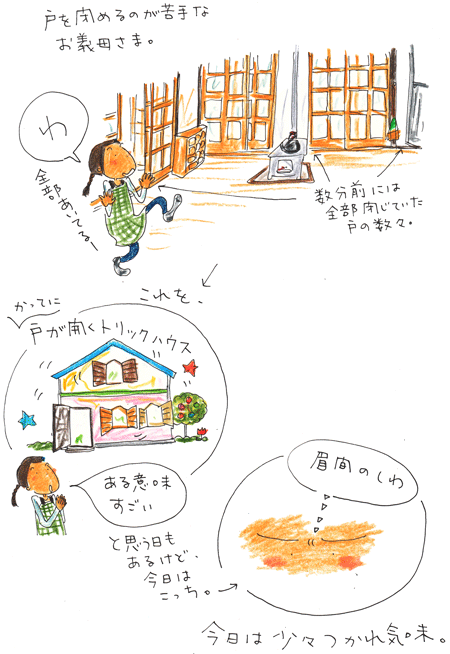 戸を閉めるのが苦手な
お義母さま。
わ
全部あいてるー
数分前には
全部閉じていた
戸の数々。
これを、
かってに
戸が開くトリックハウス
ある意味
すごい
と思う日も
あるけど、
今日は
こっち。
眉間のしわ
今日は少々つかれ気味。